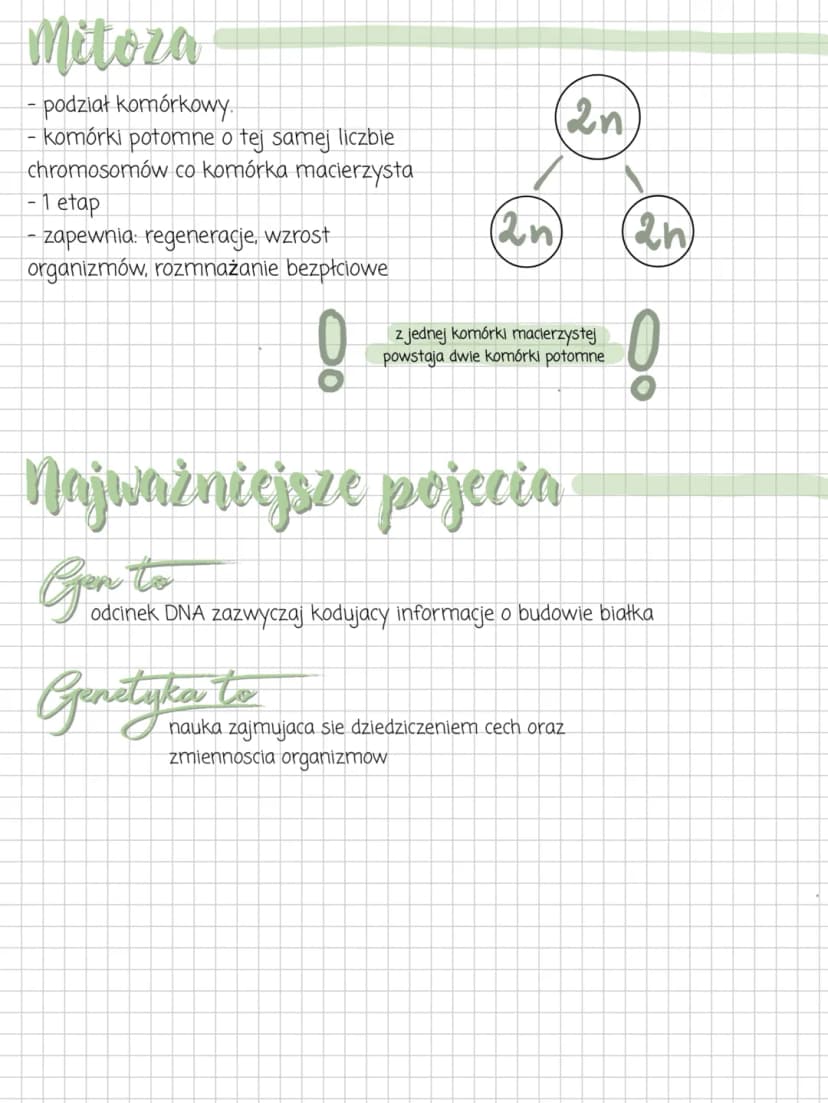 Mitoza
- podział komórkowy.
- komórki potomne o tej samej liczbie
chromosomów co komórka macierzysta
- 1 etap
- zapewnia: regeneracje, wzrost
organizmów, rozmnażanie bezpłciowe
2n
2n
2n
! z jednej komórki macierzystej !
powstaja dwie komórki potomne
Najważniejsze pojecia
Gen to
odcinek DNA zazwyczaj kodujacy informacje o budowie białka
Genetyka to
nauka zajmujaca sie dziedziczeniem cech oraz
zmiennoscia organizmow